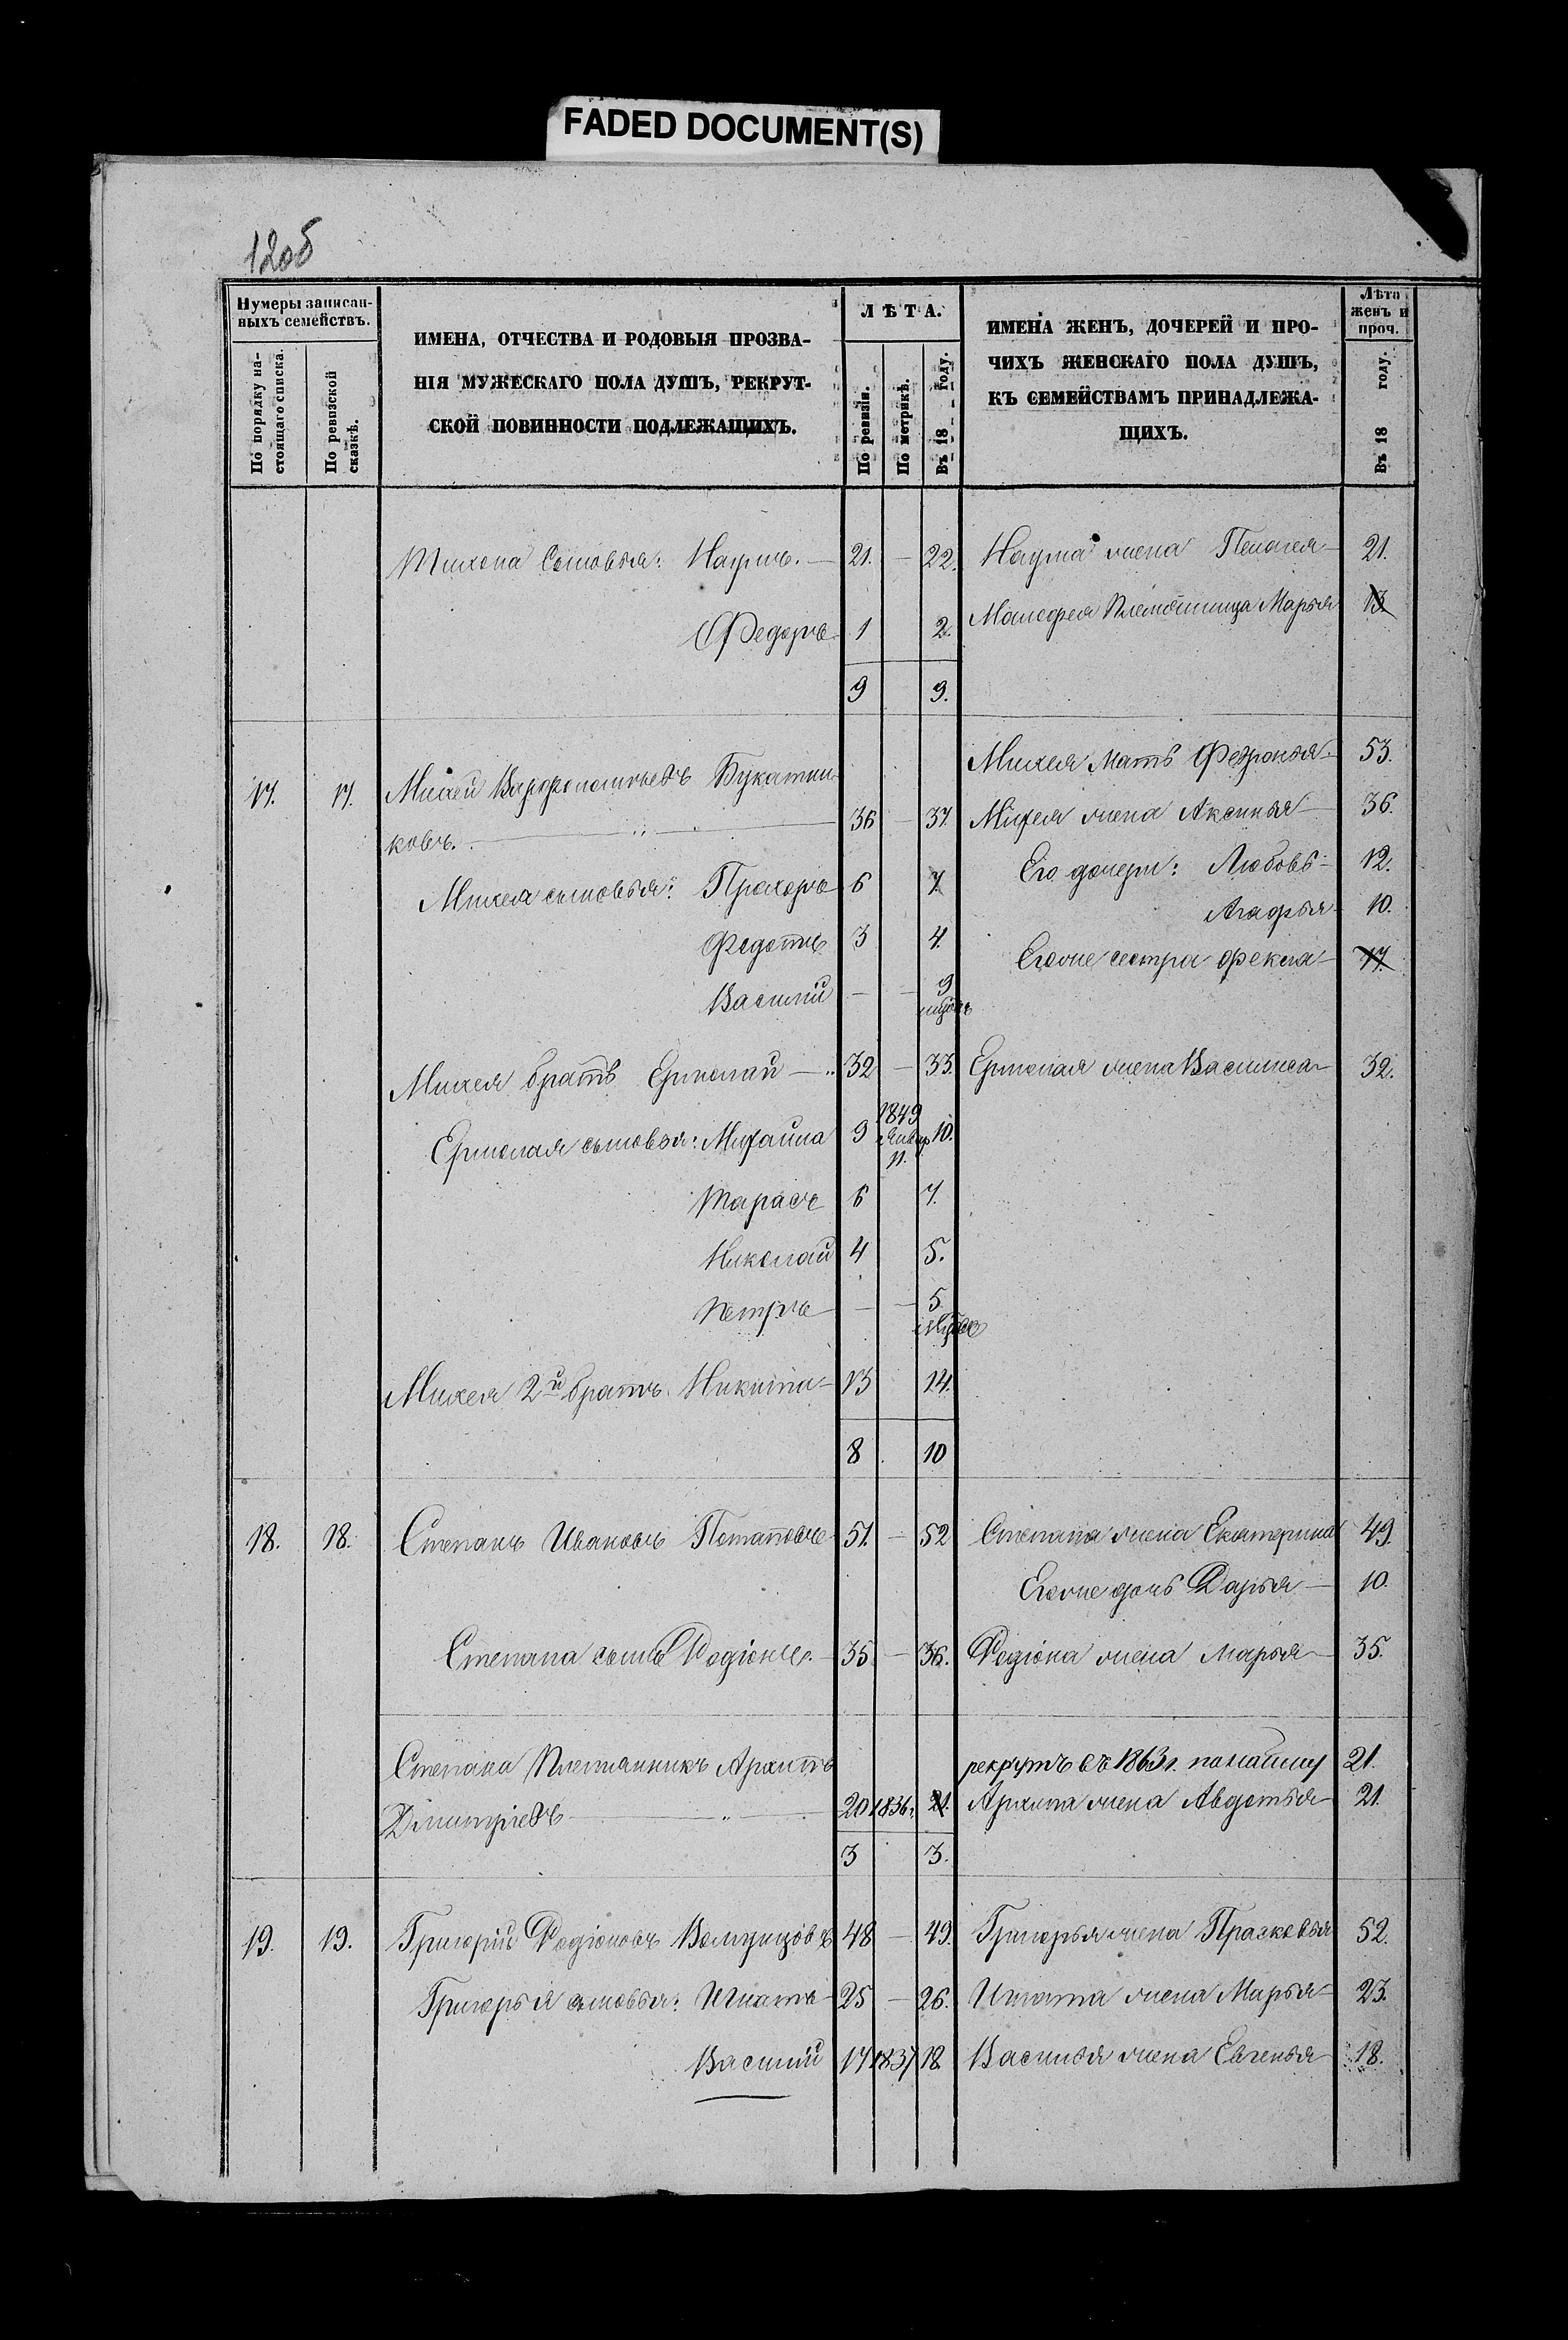 FADED DOCUMENT(S)
120б
Нумеры записан-
ныхъ семействъ.
По порядку на-
стоящаго списка.
По ревизской
сказкѣ.
ИМЕНА, ОТЧЕСТВА И РОДОВЫЯ ПРОЗВА-
НІЯ МУЖЕСКАГО ПОЛА ДУШЪ, РЕКРУТ-
СКОЙ ПОВИННОСТИ ПОДЛЕЖАЩИХЪ.
ЛѢТА.
По ревизіи.
По метрикѣ.
Въ 18 году.
ИМЕНА ЖЕНЪ, ДОЧЕРЕЙ И ПРО-
ЧИХЪ ЖЕНСКАГО ПОЛА ДУШЪ,
КЪ СЕМЕЙСТВАМЪ ПРИНАДЛЕЖА-
ЩИХЪ.
Лѣта
женъ и
проч.
Въ 18 году.
Тихона Сыновья: Наумъ. — 21. — 22. Наума жена Пелагея — 21.
Федоръ 1 2. Племянница Марья 13
9 9.
Михея Мать Февронья 53.
17. 17. Михей Варфоломѣевъ Букатни-
ковъ. 36 — 37. Михея жена Аксинья — 36.
Его дочери: Любовь — 12.
Михея сыновья: Прохоръ 6 7
Агафья 10.
Федотъ 3 4.
Егоже сестра Фекла 17.
Василій — — 9
Михея братъ Ермолай — 32 — 33. Ермолая жена Василиса 32.
Ермолая сыновья: Михайла 9 1849 Январ. 11. 10.
Тарасъ 6 7.
Николай 4 5.
Петръ — — 5
Михея 2й братъ Никита — 13 14.
8 10
18. 18. Степанъ Ивановъ Потаповъ 51. — 52 Степана жена Екатерина 49.
Егоже дочь Дарья — 10.
Степана сынъ Родіонъ — 35 — 36. Родіона жена Марья 35.
Степана Племянникъ Архипъ рекрутъ съ 1863 г. по найму 21.
Дмитріевъ 20 1836 г. 21. Архипа жена Авдотья 21.
3 3.
19. 19. Григорій Родіоновъ 48 — 49. Григорья жена Прасковья 52.
Григорья сыновья: Игнатъ 25 — 26. Игната жена Марья 23.
Василій 17 1837 18 Василья жена Евгенья 18.